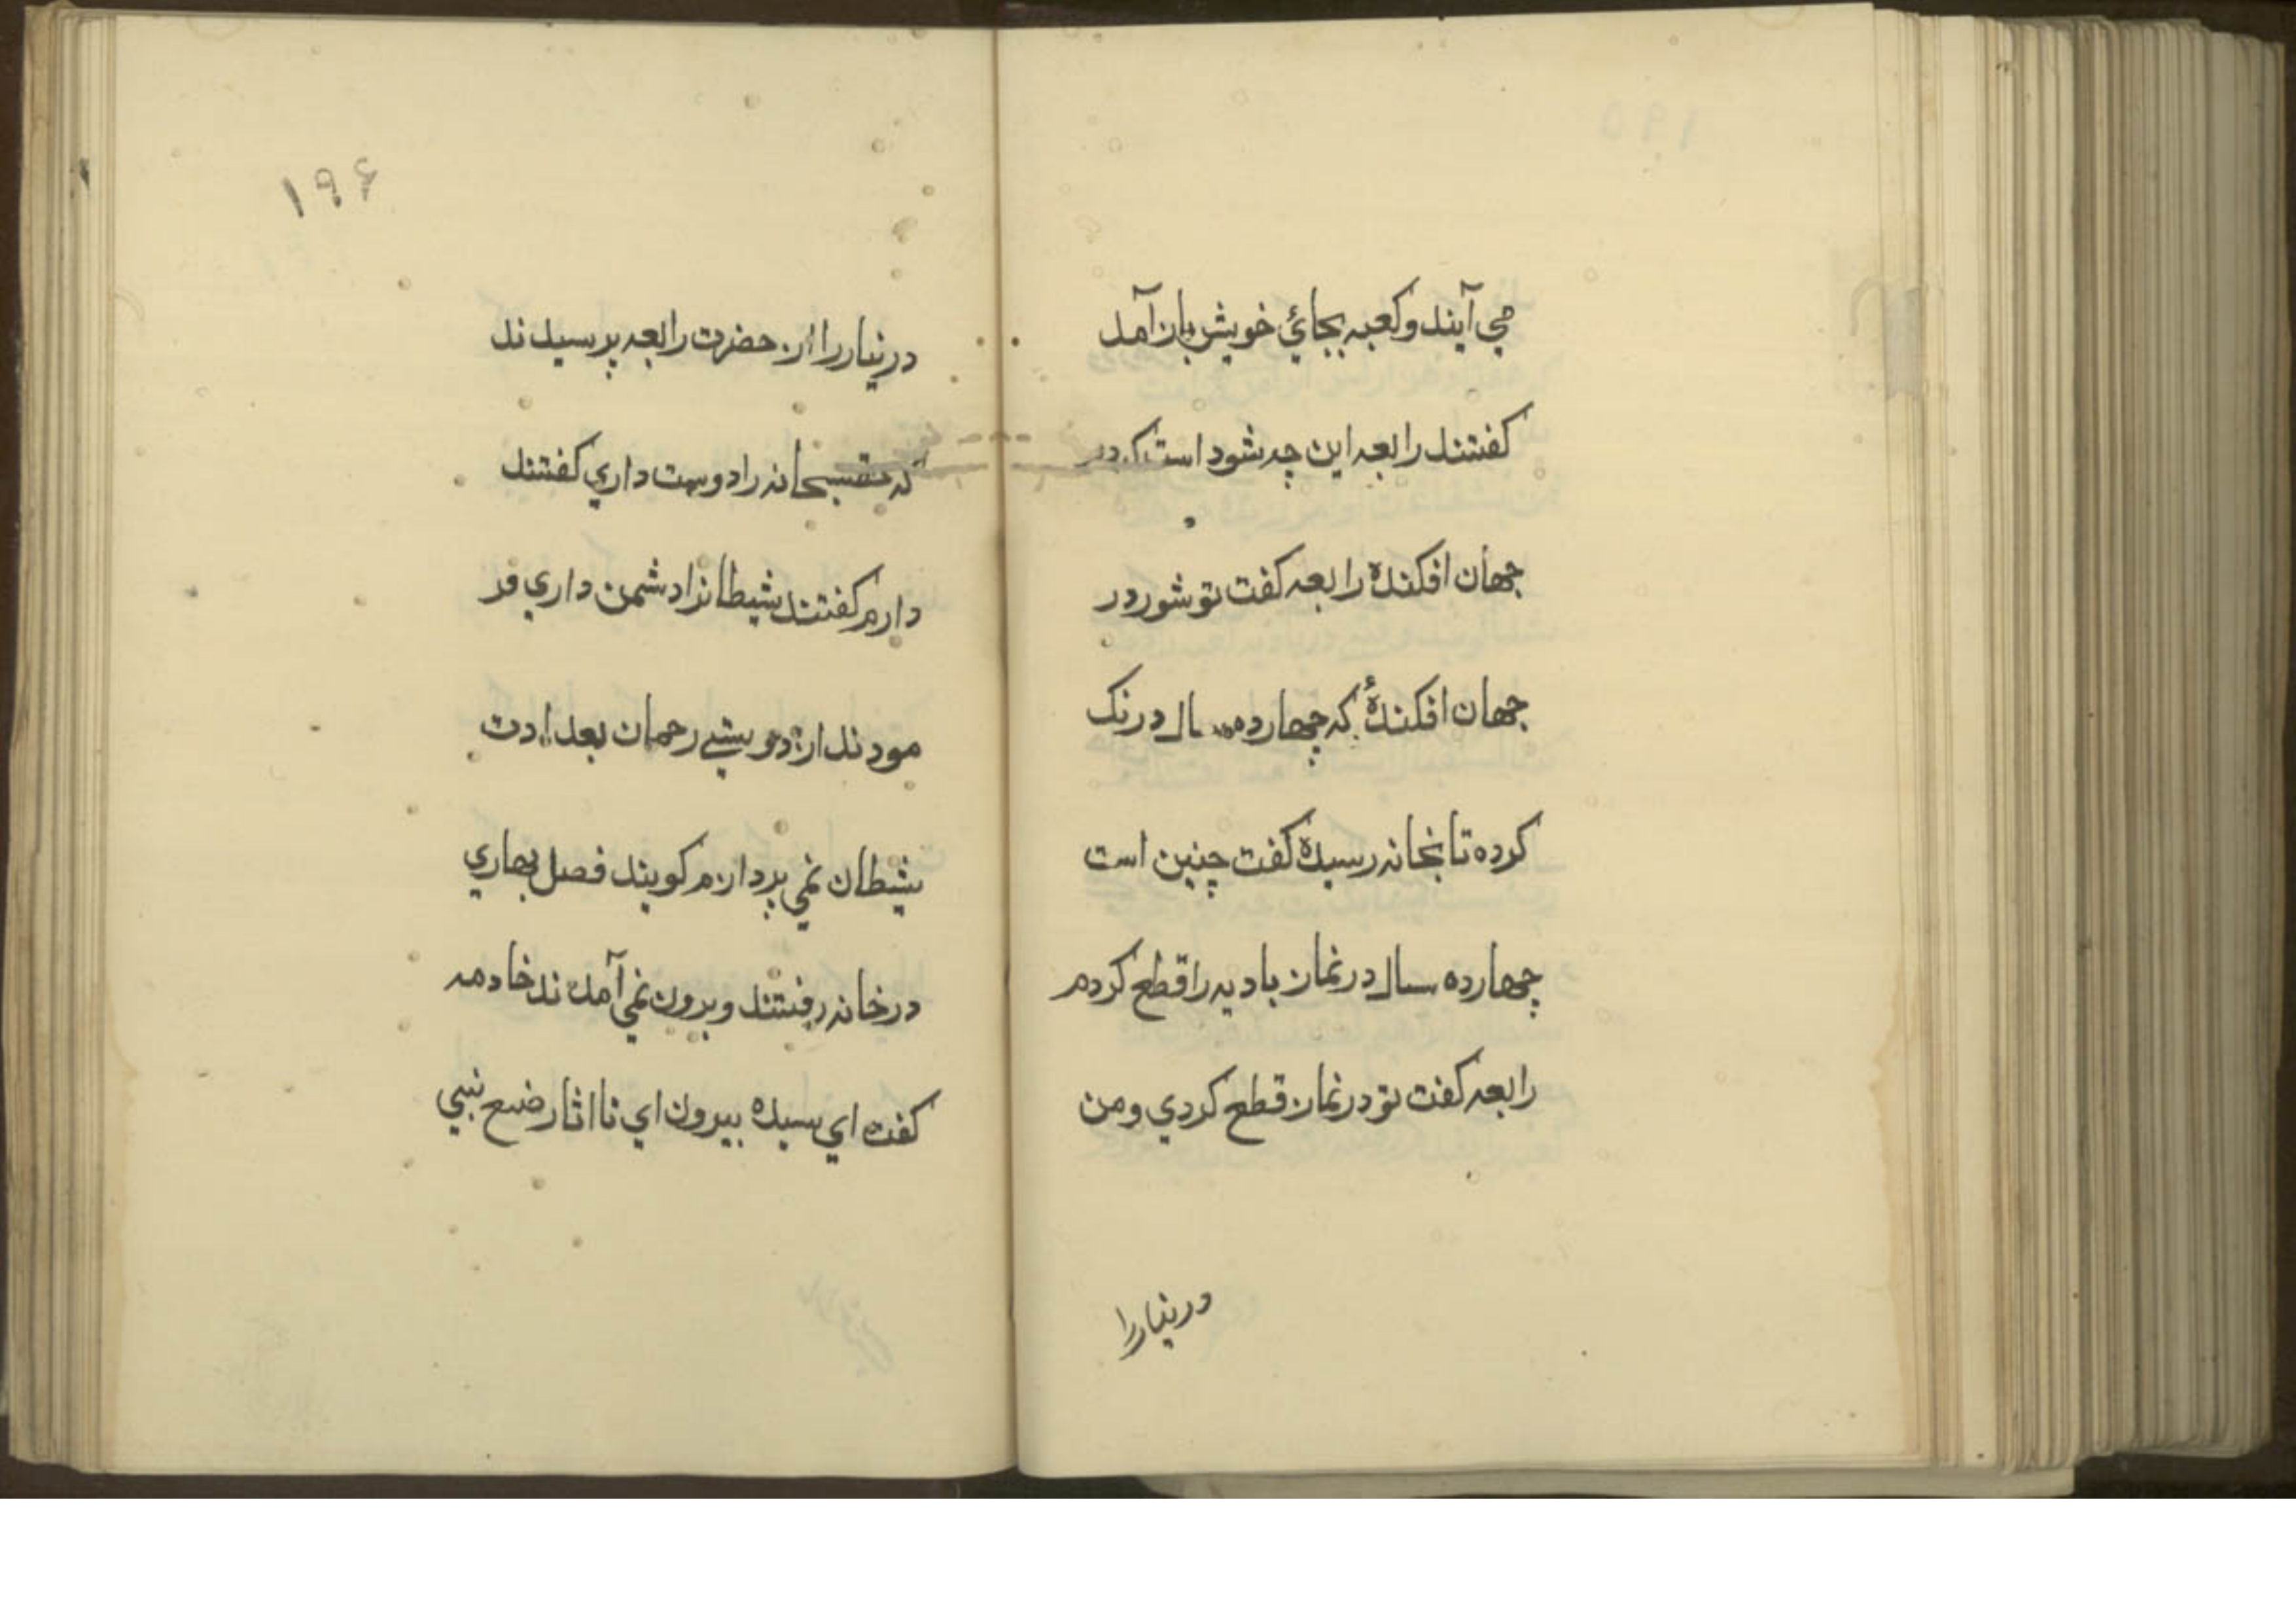 مي آيند و كعبه بجائي خويش باز آمد
كفتند رابعه اين چه شود است كه در
جهان افكندهٔ رابعه كفت تو شور در
جهان افكندهٔ كه چهارده سال درنك
كرده تا بخانه رسيدهٔ كفت چنين است
چهارده سال در نماز باديه را قطع كردم
رابعه كفت تو در نماز قطع كردي و من
در نياز را
۱۹۶
در نياز را از حضرت رابعه پرسيدند
كه سبحانه را دوست داري كفتند
دارم كفتند شيطانرا دشمن داري فر
مودند از دوستي رحمان بعداوت
شيطان نمي پردازم كويند فصل بهاري
در خانه رفتند و برون نمي آمدند خادمه
كفت اي سيده بيرون اي تا اثار صنع نبي